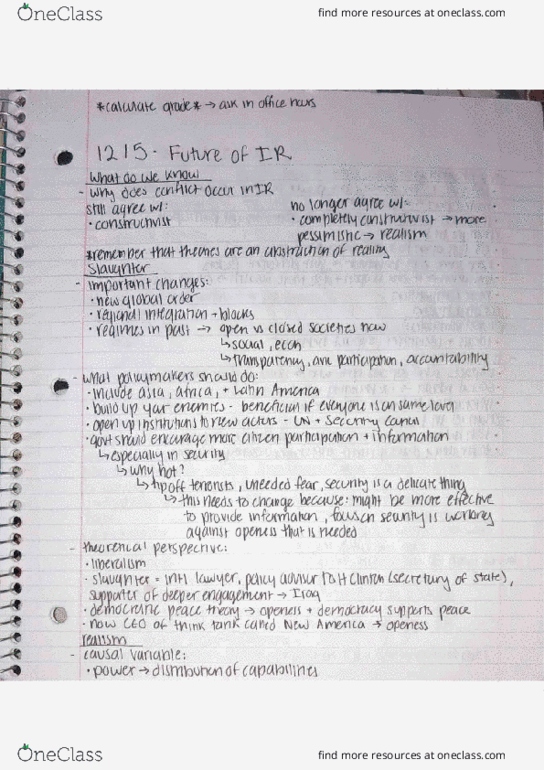 OneClass
find more resources at oneclass.com
*calculate grade* → ask in office hours
1215 - Future of IR
What do we know
- why does conflict occur in IR
still agree w/:
no longer agree w/:
• constructivist
• completely constructivist → more
pessimistic → realism
*remember that theories are an abstraction of reality
Slaughter
- important changes:
• new global order
• regional integration + blocks
• regimes in past → open vs closed societies now
↳ social, econ
↳ transparency, civic participation, accountability
- what policymakers should do:
• include asia, africa, + Latin America
• build up your enemies - beneficial if everyone is on same level
• open up institutions to new actors - UN + Security Council
• govt should encourage more citizen participation + information
↳ especially in security
↳ why not?
↳ tip off terrorists, uneeded fear, security is a delicate thing
↳ this needs to change because: might be more effective
to provide information, focus on security is working
against openess that is needed
- theoretical perspective:
• liberalism
• slaughter = intl lawyer, policy advisor to H Clinton (secretary of state),
supporter of deeper engagement → Iraq
• democratic peace theory → openess + democracy supports peace
• now CEO of think tank called New America → openess
realism
- causal variable:
• power → distribution of capabilities
OneClass
find more resources at oneclass.com